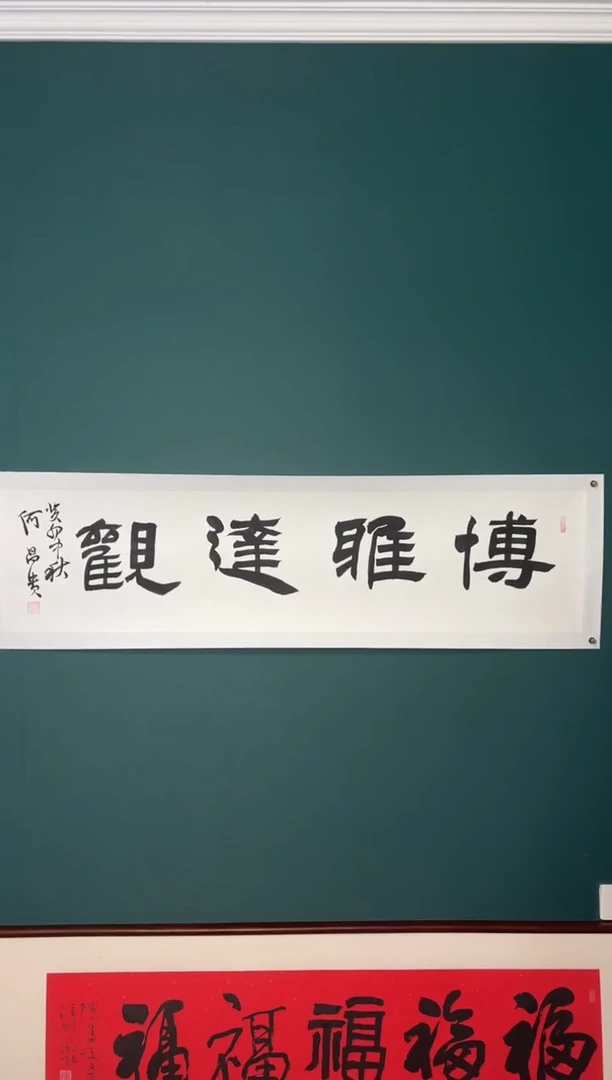 博雅達觀
癸卯中秋
何昌贵
福福福福福